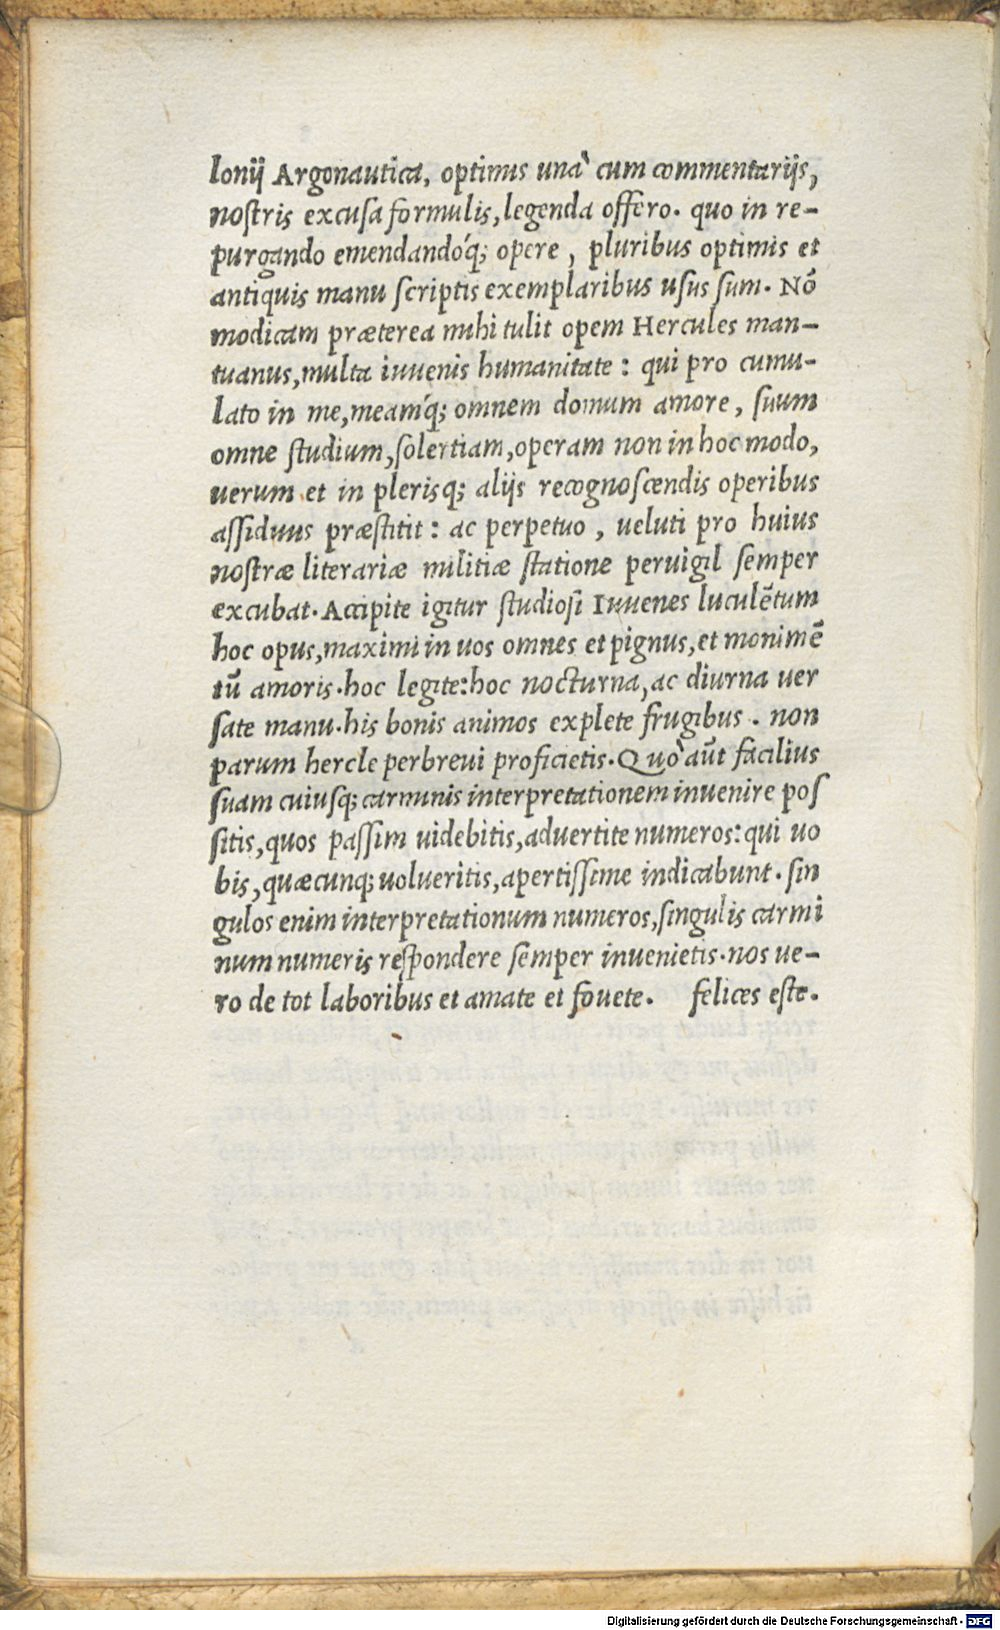 lonij Argonautica, optimis unà cum commentarijs,
nostris excusa formulis, legenda offero. quo in re-
purgando emendandóq; opere, pluribus optimis et
antiquis manu scriptis exemplaribus usus sum. Nō
modicam præterea mihi tulit opem Hercules man-
tuanus, multa iuvenis humanitate: qui pro cumu-
lato in me, meamq́; omnem domum amore, suum
omne studium, solertiam, operam non in hoc modo,
uerum et in plerisq; alijs recognoscendis operibus
assiduus præstitit: ac perpetuo, ueluti pro huius
nostræ literariæ militiæ statione peruigil semper
excubat. Accipite igitur studiosi Iuvenes luculētum
hoc opus, maximi in uos omnes et pignus, et monimē
tū amoris. hoc legite: hoc nocturna, ac diurna uer
sate manu. his bonis animos explete frugibus. non
parum hercle perbrevi proficietis. Quò aūt facilius
suam cuiusq; carminis interpretationem invenire pos
sitis, quos passim uidebitis, advertite numeros: qui uo
bis, quæcunq; uolueritis, apertissime indicabunt. sin
gulos enim interpretationum numeros, singulis carmi
num numeris respondere semper invenietis. nos ue-
ro de tot laboribus et amate et fouete. felices este.
Digitalisierung gefördert durch die Deutsche Forschungsgemeinschaft - DFG